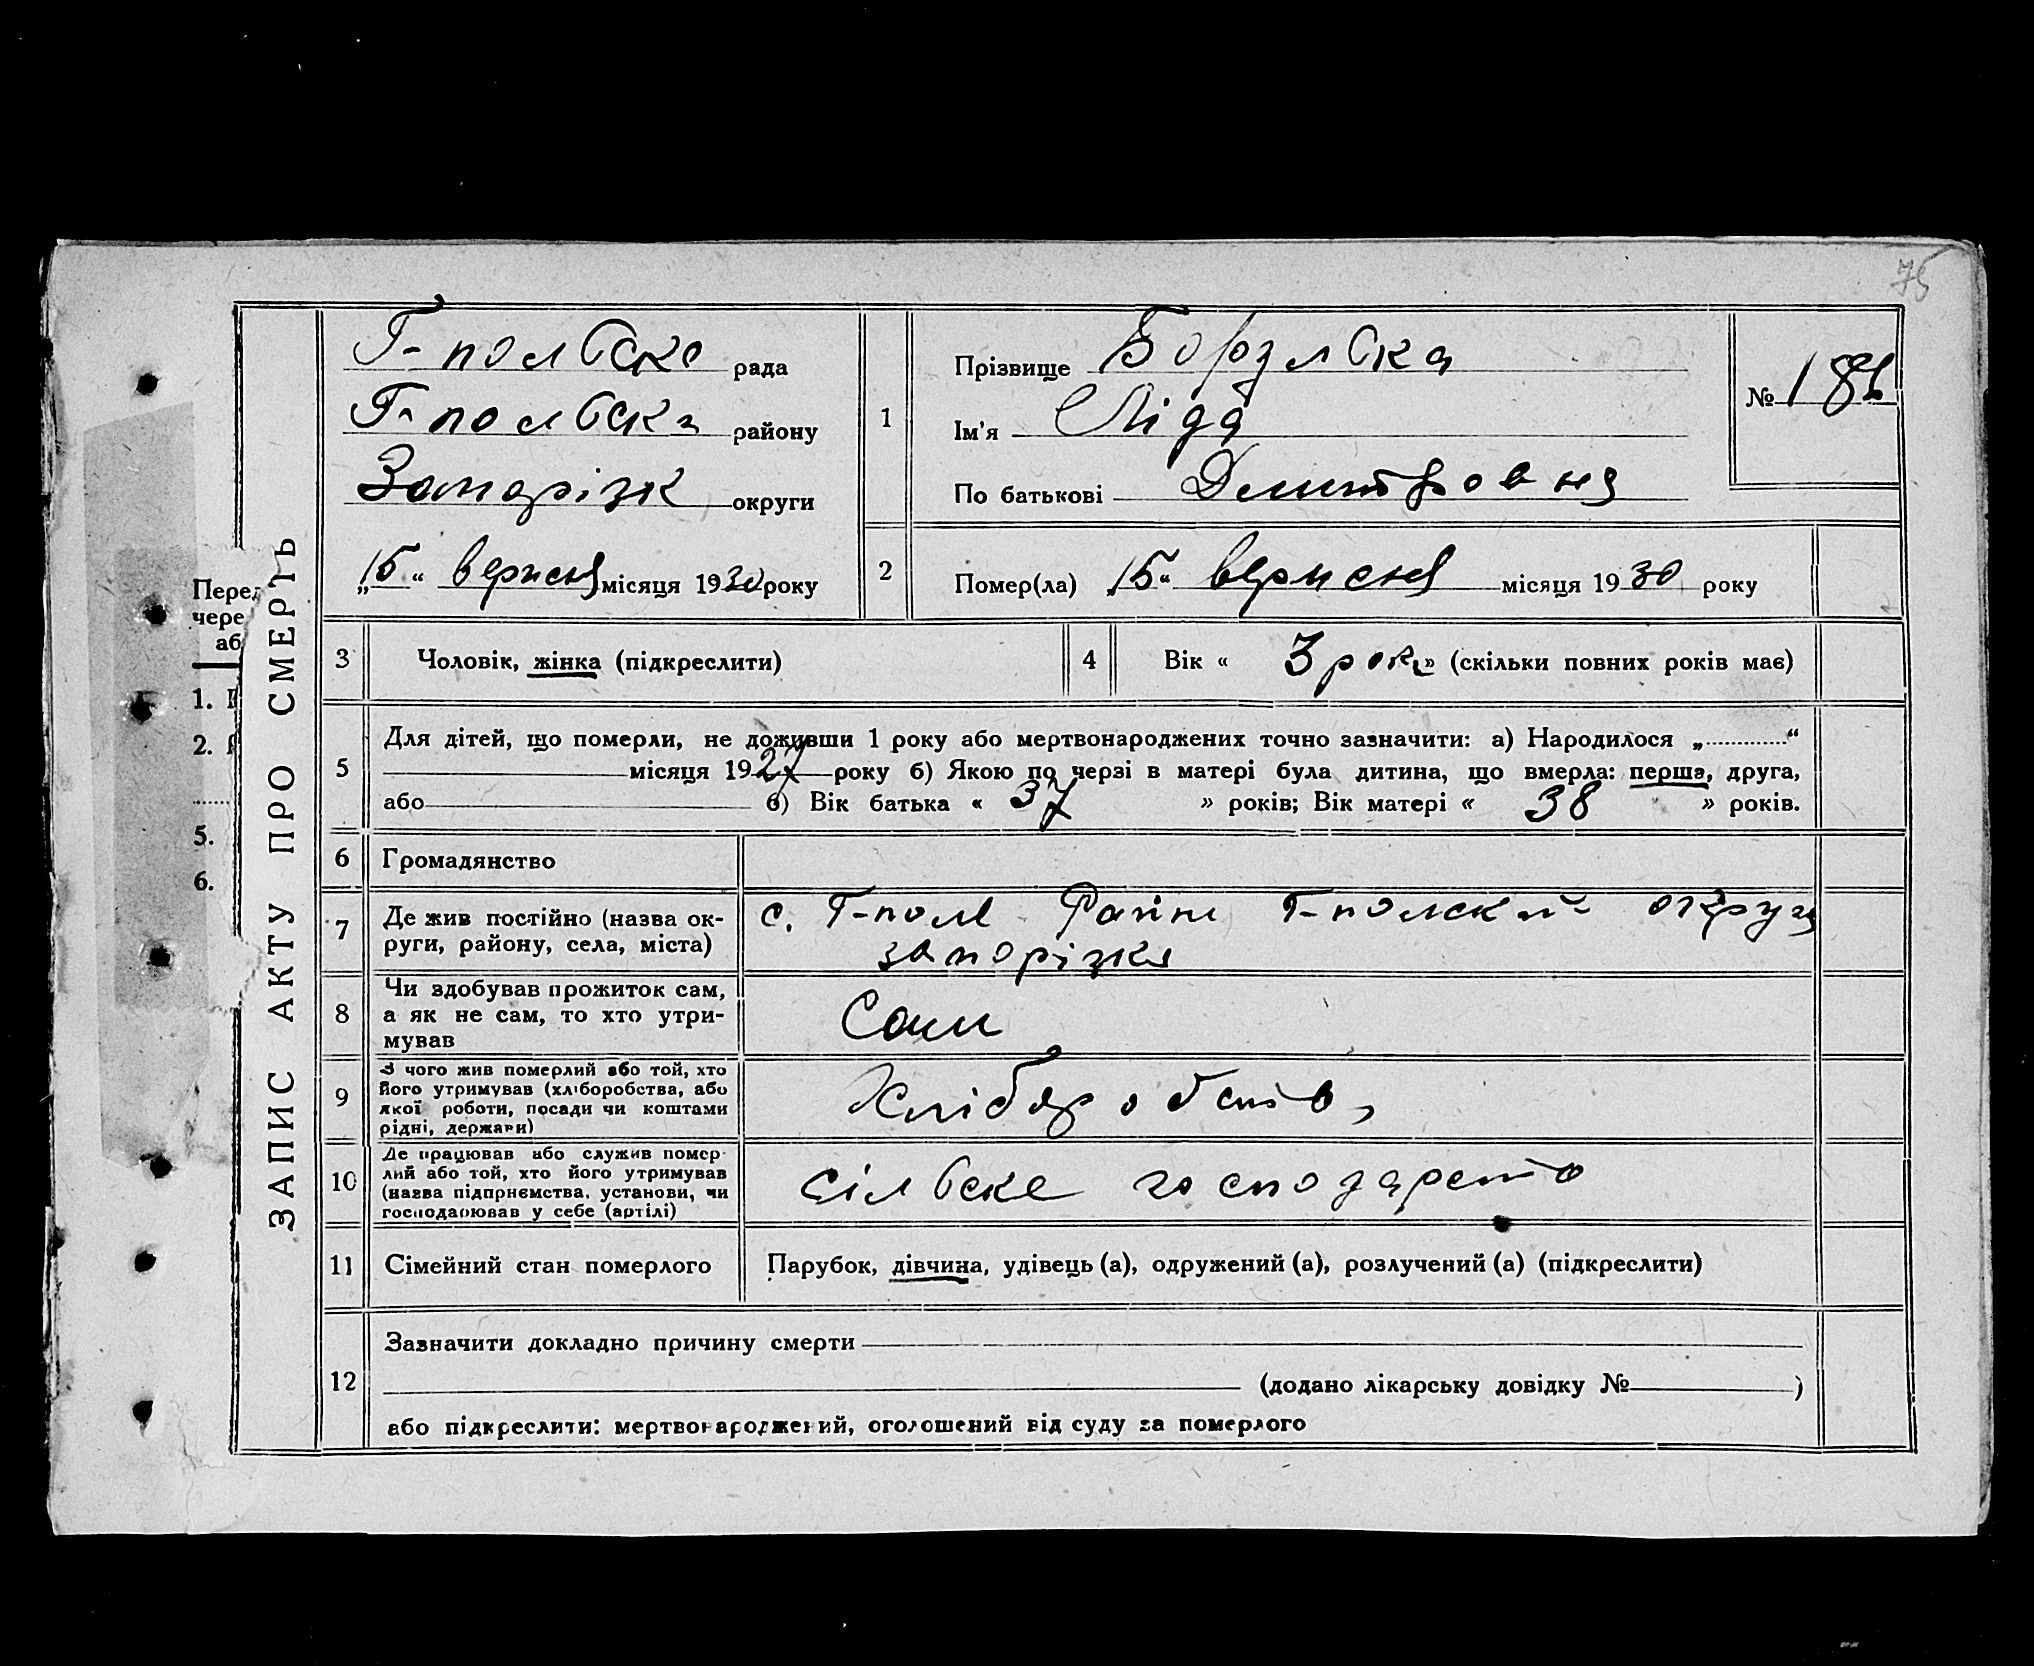 75
ЗАПИС АКТУ ПРО СМЕРТЬ
Г-польске рада
Г-польски району
Запоріжк округи
„15“ вернсня місяця 1930 року
1
Прізвище
Ім'я Ліда
По батькові Дмитровна
№ 186
2
Помер(ла) „15“ вернсня місяця 1930 року
Перед
чере
аб
1.
2.
5.
6.
3 Чоловік, жінка (підкреслити)
4 Вік « 3 рок » (скільки повних років має)
5
Для дітей, що померли, не доживши 1 року або мертвонароджених точно зазначити: а) Народилося „............“
місяця 1927 року б) Якою по черзі в матері була дитина, що вмерла: перша, друга,
або в) Вік батька « 37 » років; Вік матері « 38 » років.
6 Громадянство
7
Де жив постійно (назва ок-
руги, району, села, міста)
с. Г-поле Району Г-полский округи
запорізка
8
Чи здобував прожиток сам,
а як не сам, то хто утри-
мував
Сам
9
З чого жив померлий або той, хто
його утримував (хліборобства, або
якої роботи, посади чи коштами
рідні, держави)
Хліборобство
10
Де працював або служив помер-
лий або той, хто його утримував
(назва підприємства, установи, чи
господарював у себе (артілі)
сільске господарсто
11 Сімейний стан померлого
Парубок, дівчина, удівець (а), одружений (а), розлучений (а) (підкреслити)
12
Зазначити докладно причину смерти
(додано лікарську довідку № )
або підкреслити: мертвонароджений, оголошений від суду за померлого